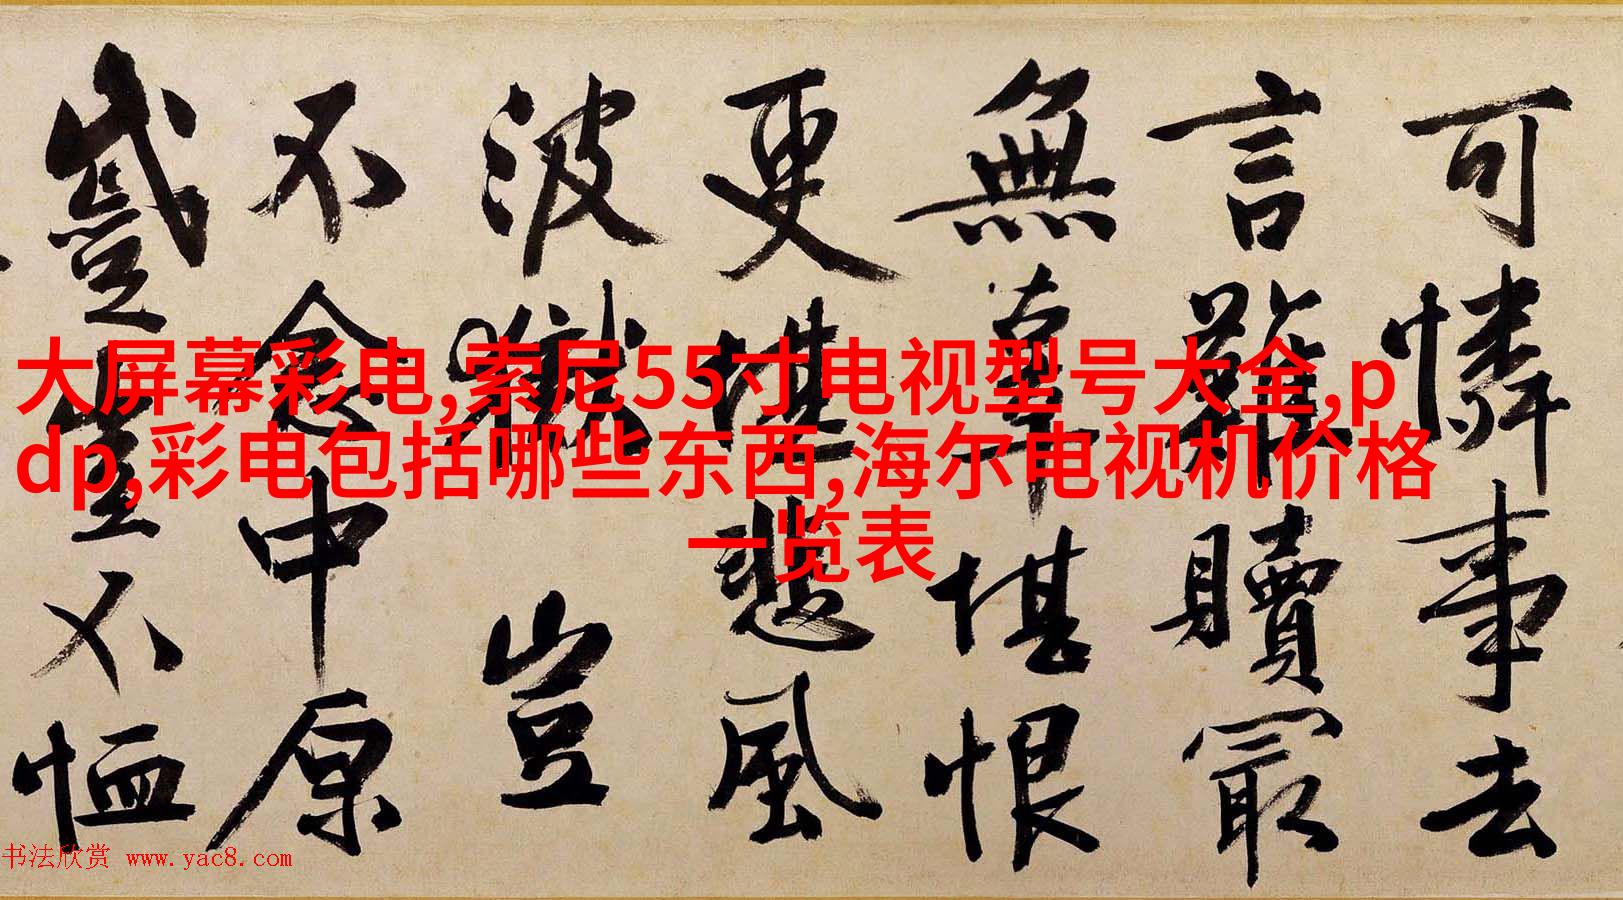 可憐事去
言難贖冣
無辜堪恨
更堪悲風
波獄豈
不念中原
豈不恤
大屏幕彩电,索尼55寸电视型号大全,p
dp,彩电包括哪些东西,海尔电视机价格
一览表
书法欣赏 www.yac8.com